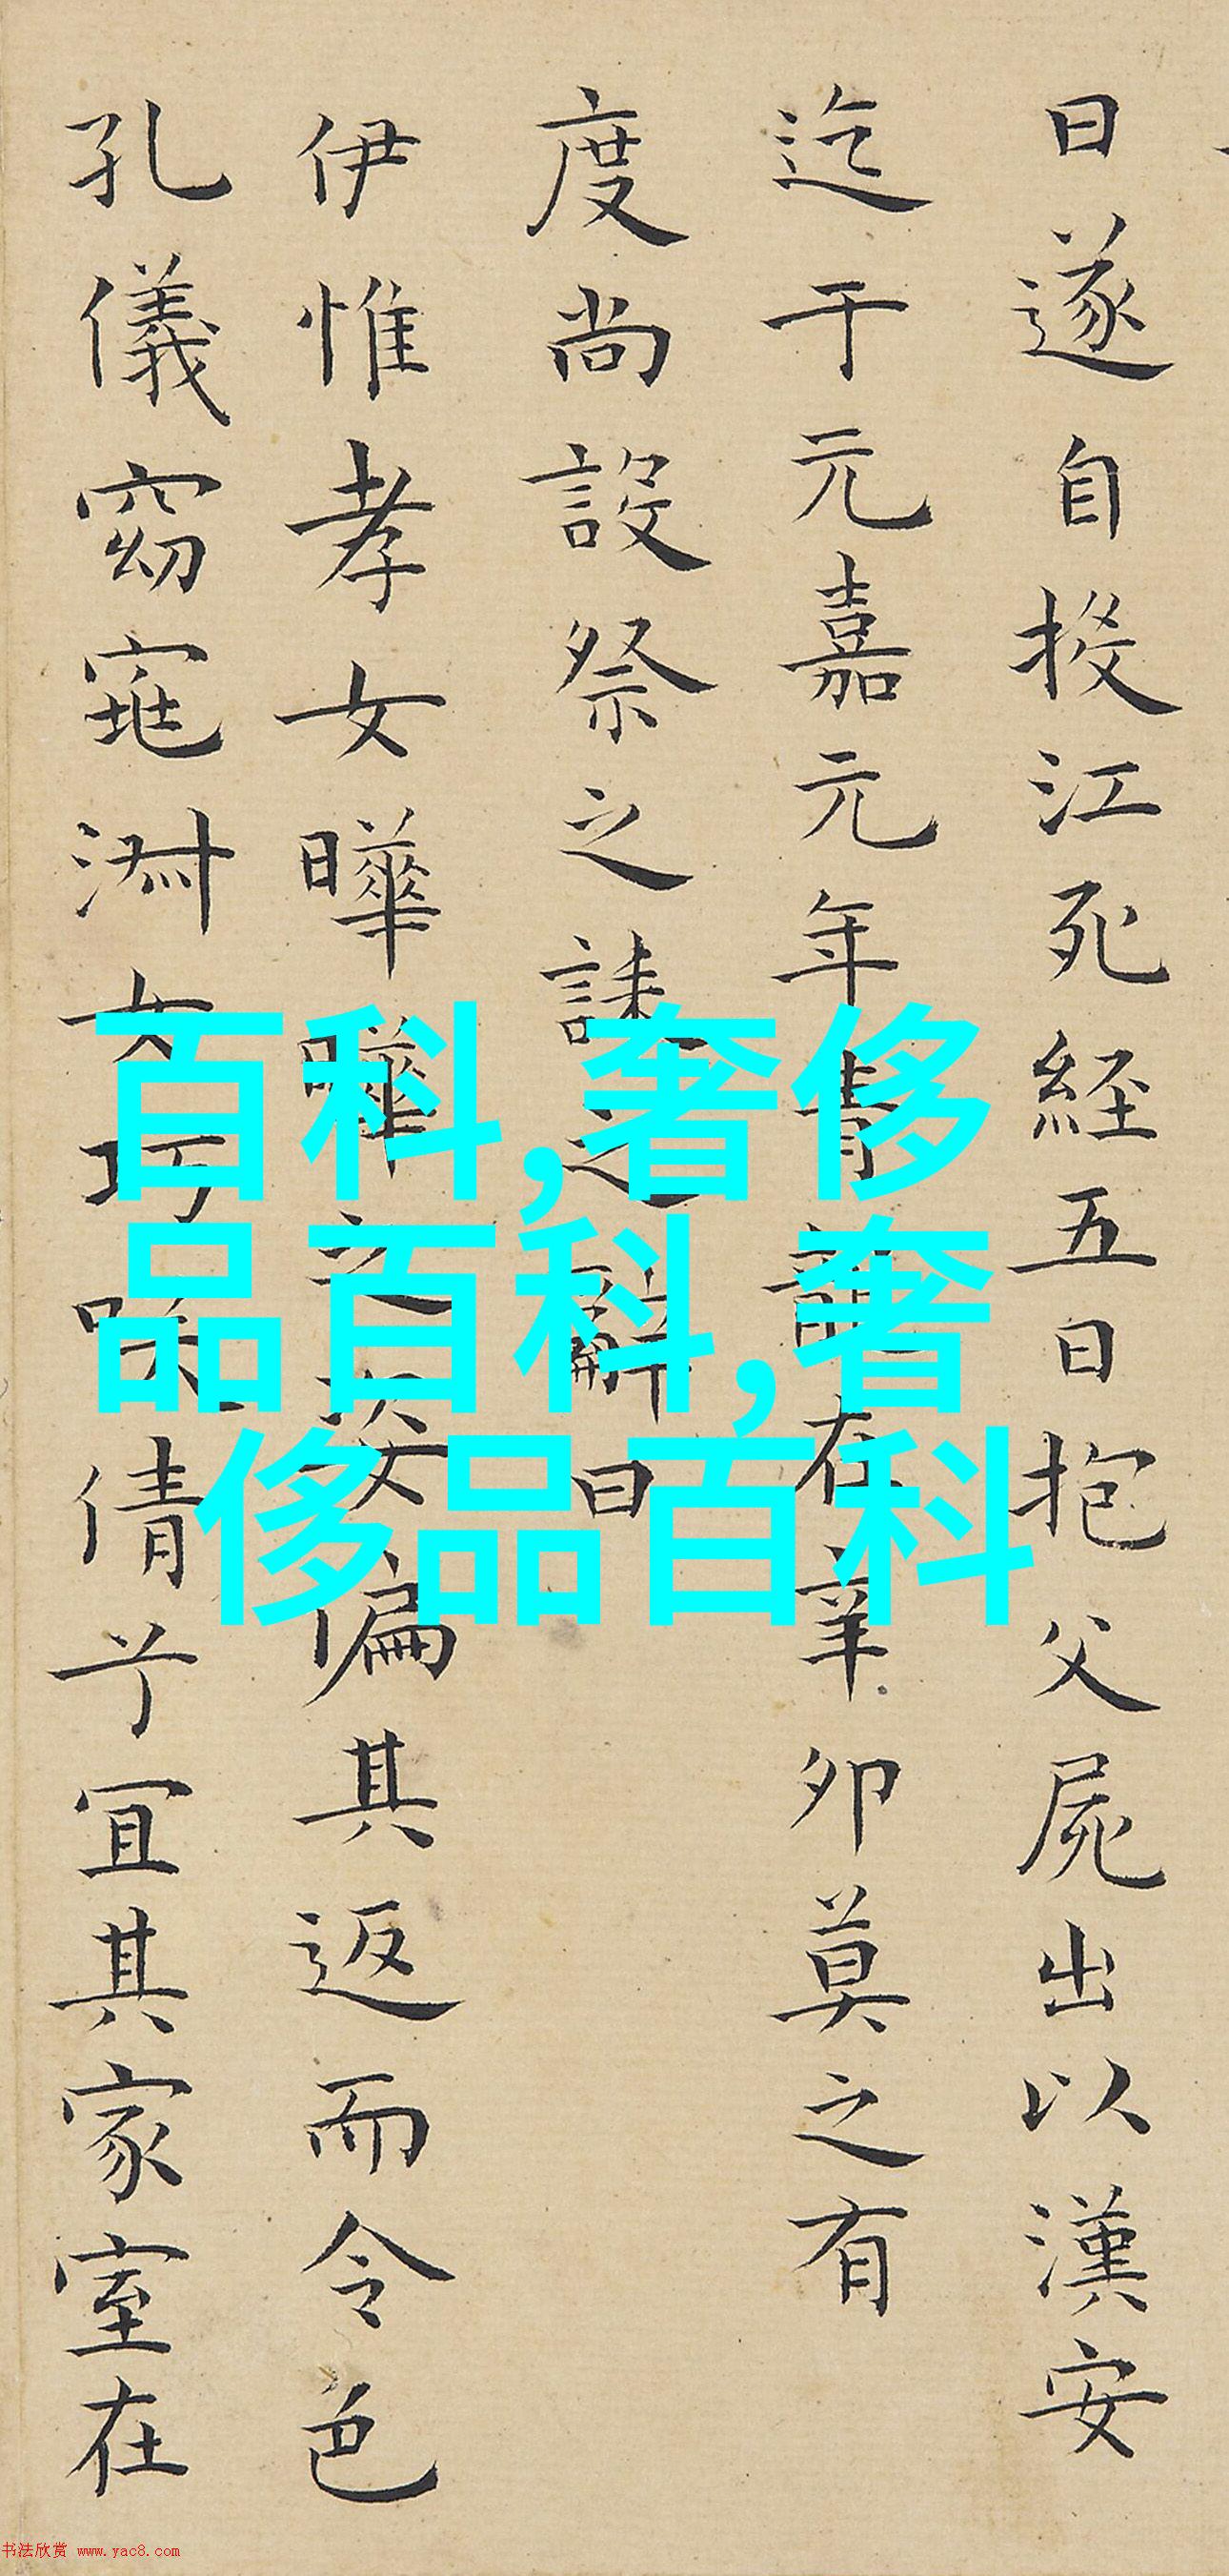 日遂自投江死経五日抱父屍出以漢安
迄于元嘉元年青龍在辛卯莫之有
度尚設祭之誄之辭曰
伊惟孝女曄曄之姿偏其返而令色
孔儀窈窕淑女巧咲倩兮宜其家室在
百科,奢侈
品百科,奢
侈品百科
书法欣赏 www.yac8.com